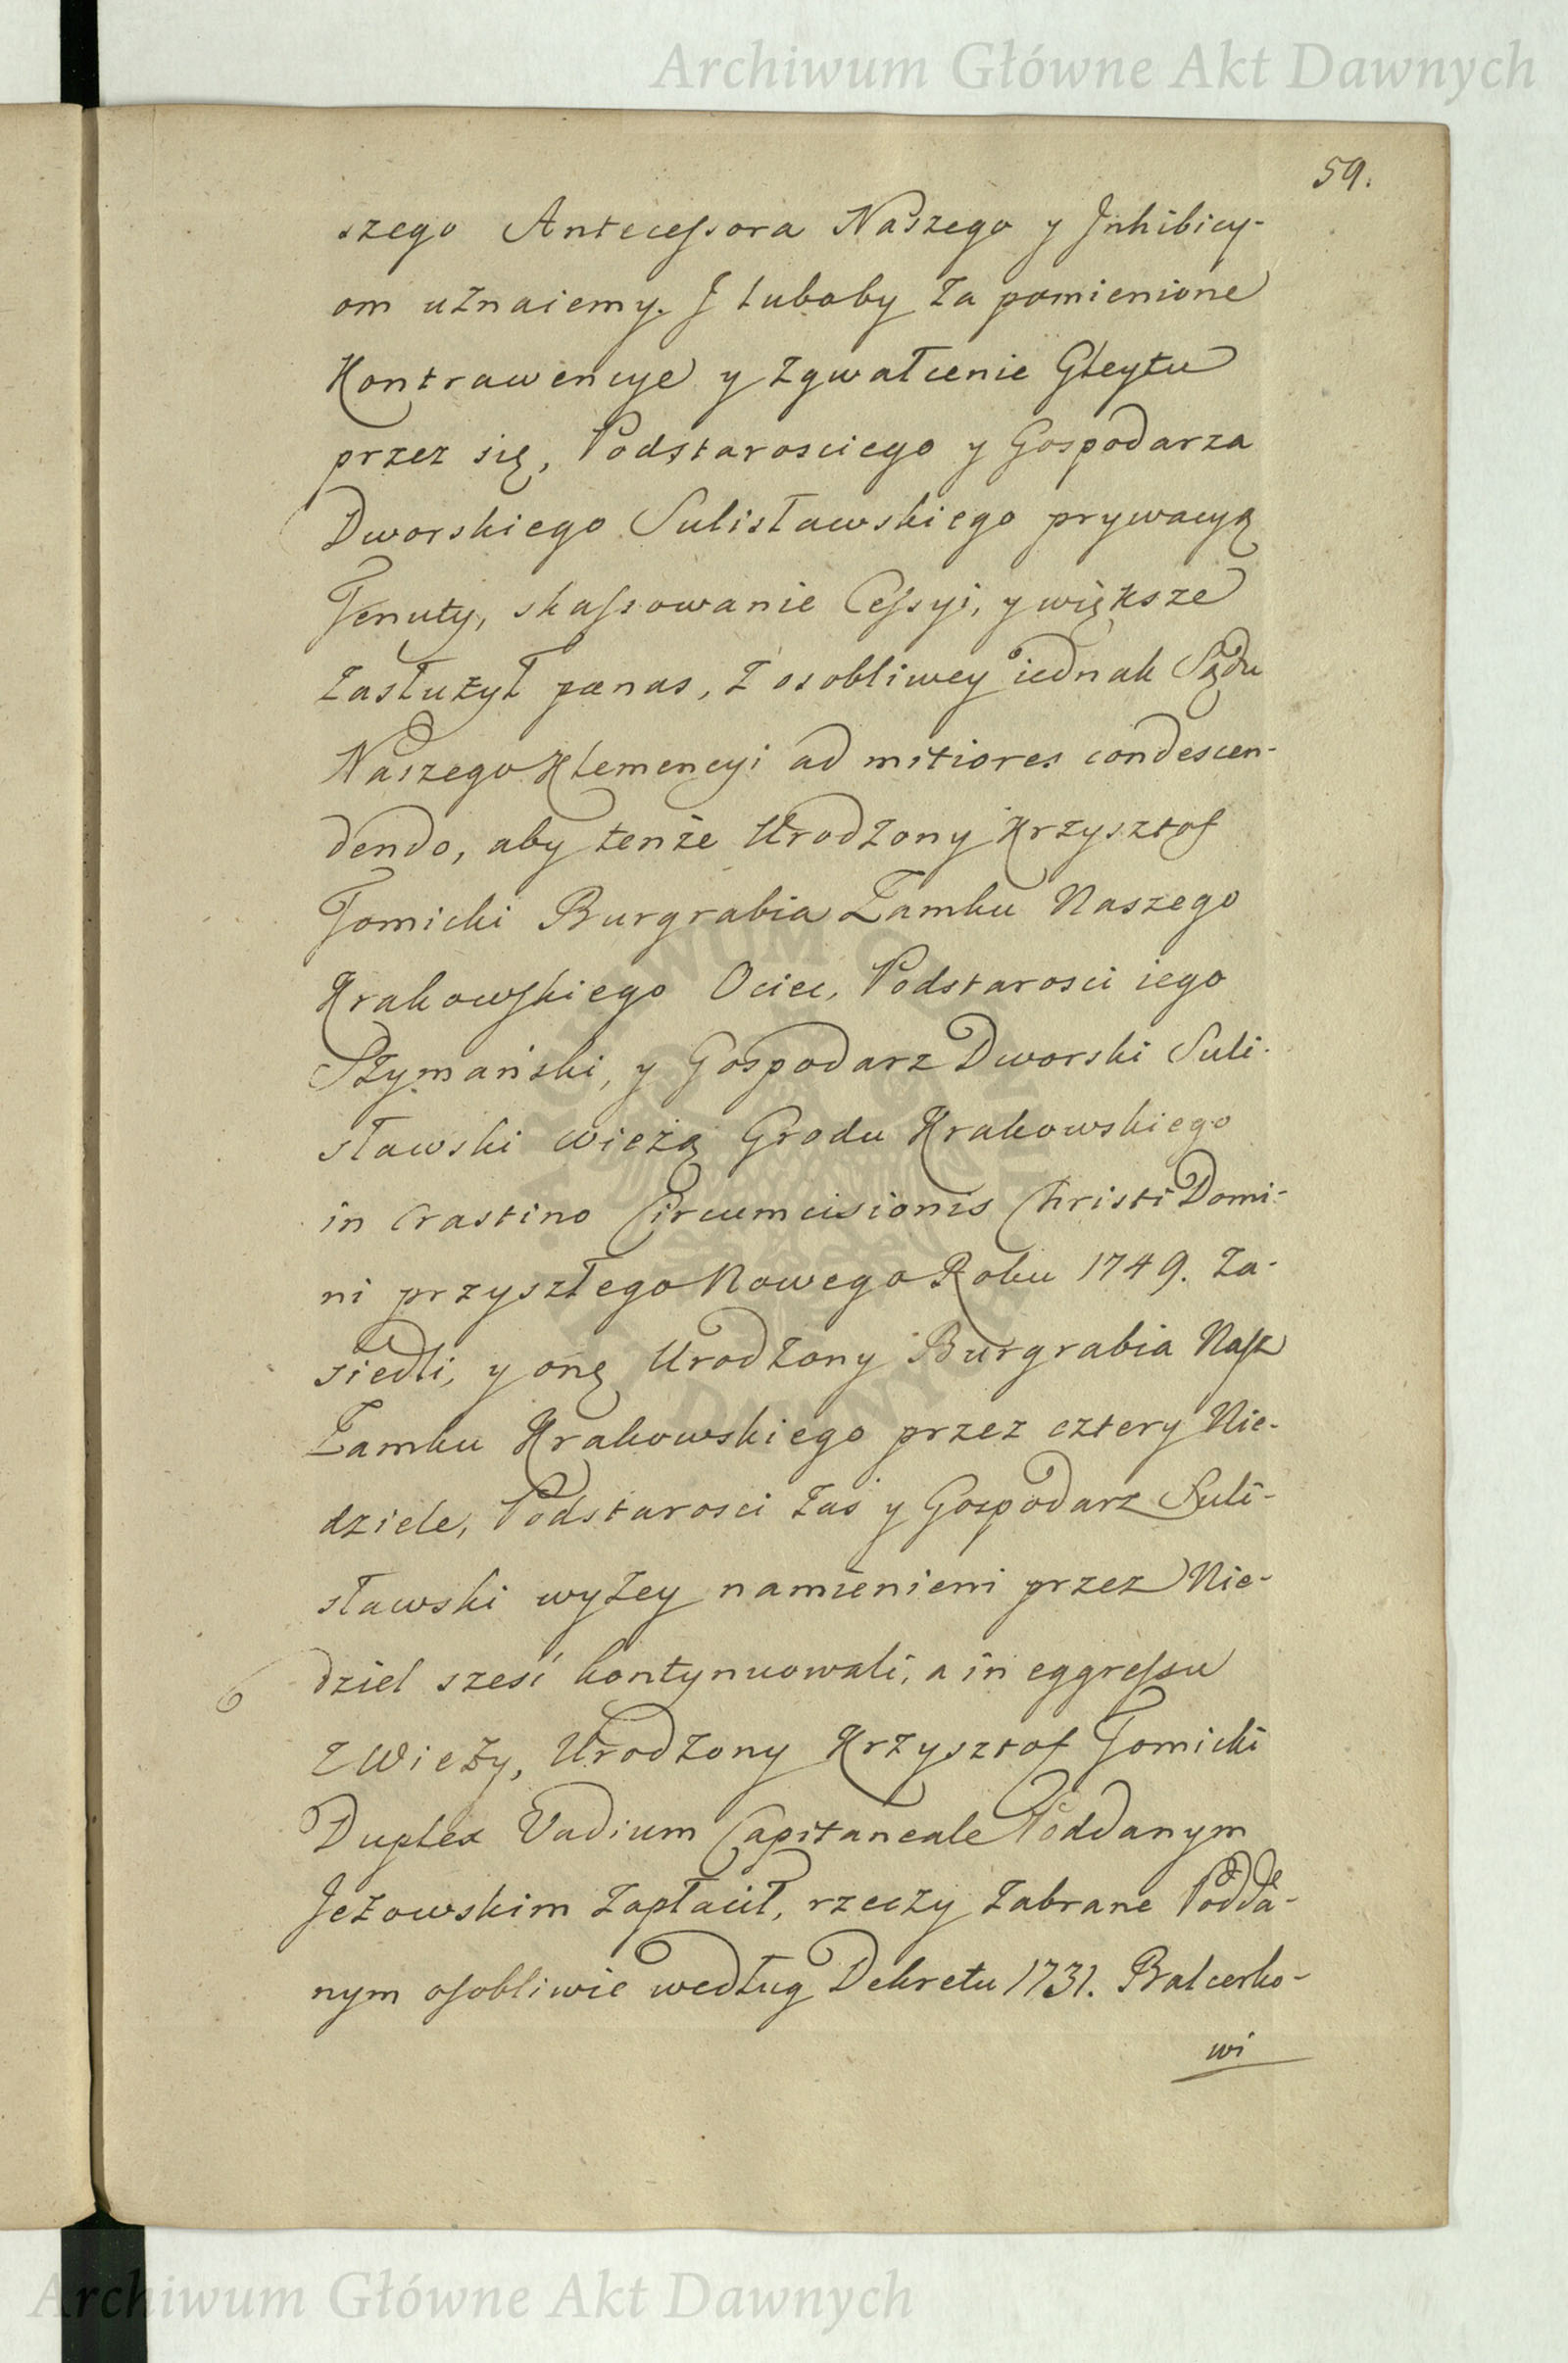 Archiwum Główne Akt Dawnych
59.
szego Antecessora Naszego y Jnhibicy-
om uznaiemy. J luboby za pomienione
Kontrawencye y zgwałcenie Gleytu
przez się, Podstarosciego y Gospodarza
Dworskiego Sulisławskiego prywacyą
Tenuty, skassowanie Cessyi, y większe
zasłużył pænas, z osobliwey iednak Sądu
Naszego Klemencyi ad mitiores condescen-
dendo, aby tenże Urodzony Krzysztof
Tomicki Burgrabia Zamku Naszego
Krakowskiego Ociec, Podstarosci iego
Szymański, y Gospodarz Dworski Suli-
sławski wieżą Grodu Krakowskiego
in Crastino Circumcisionis Christi Domi-
ni przyszłego Nowego Roku 1749. za-
siedli, y onę Urodzony Burgrabia Nasz
Zamku Krakowskiego przez cztery Nie-
dziele, Podstarosci zaś y Gospodarz Suli-
sławski wyżey namienieni przez Nie-
dziel sześć kontynuowali, a in eggressu
z Wieży, Urodzony Krzysztof Tomicki
Duplex Vadium Capitaneale Poddanym
Jeżowskim zapłacił, rzeczy zabrane Podda-
nym osobliwie według Dekretu 1731. Balcerko-
wi
Archiwum Główne Akt Dawnych